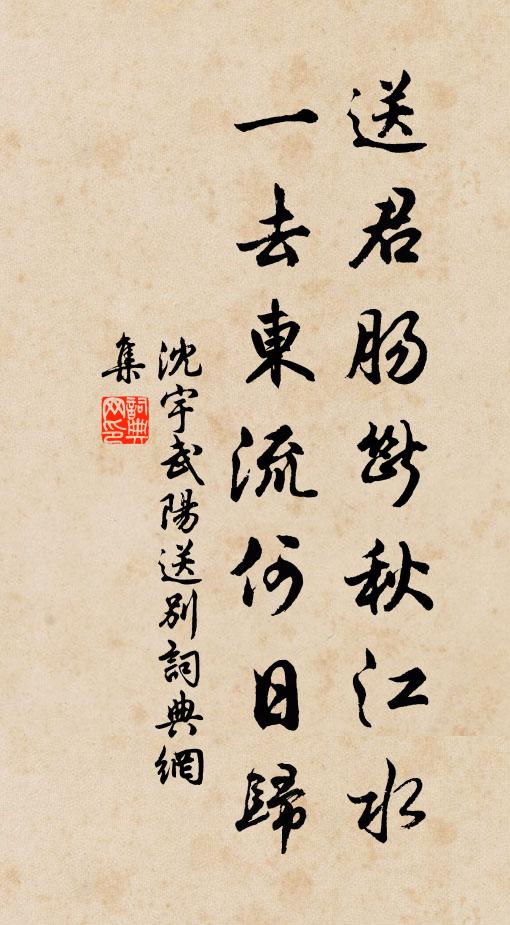 送君肠斷秋江水
一去東流何日歸
沈宇武陽送别詞典網
集
詞典
网印